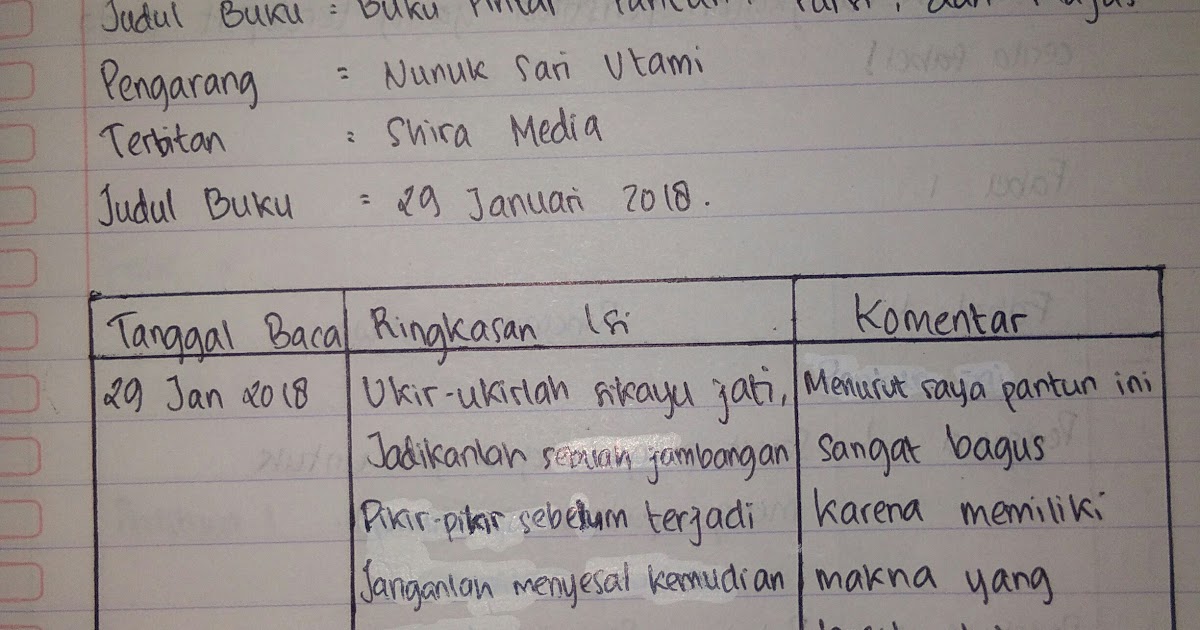 Judul Buku : Buku Pintar Pantun, Puisi, dan
Pengarang : Nunuk Sari Utami
Terbitan : Shira Media
Judul Buku : 29 Januari 2018.
Tanggal Baca Ringkasan Isi Komentar
29 Jan 2018 Ukir-ukirlah sikayu jati, Menurut saya pantun ini
Jadikanlah sebuah jambangan sangat bagus
Pikir-pikir sebelum terjadi karena memiliki
Janganlah menyesal kemudian makna yang